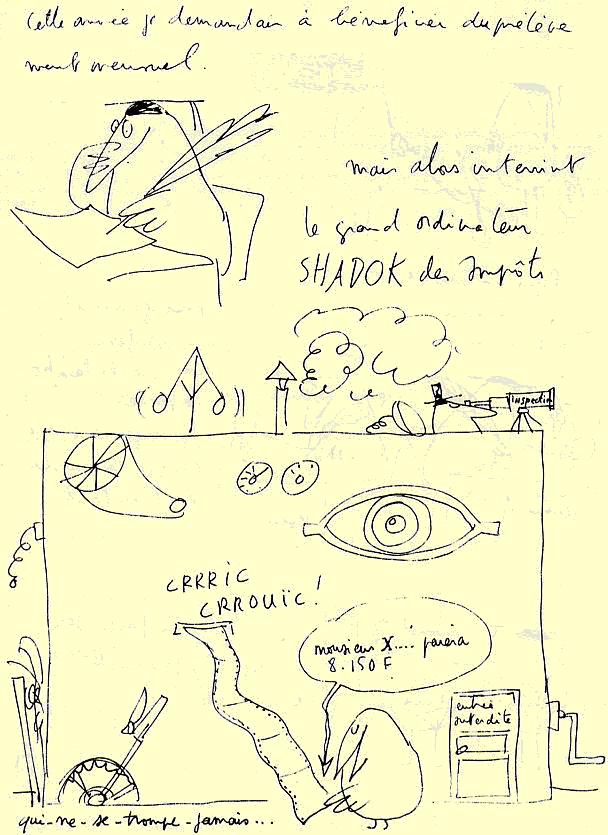 Cette année je demandais à bénéficier du prélève
ment mensuel.
mais alors intervint
le grand ordinateur
SHADOK des Impôts
inspection
CRRRIC
CRROUÏC !
monsieur X....: paiera
8.150 F
entrée
interdite
qui-ne-se-trompe-jamais...